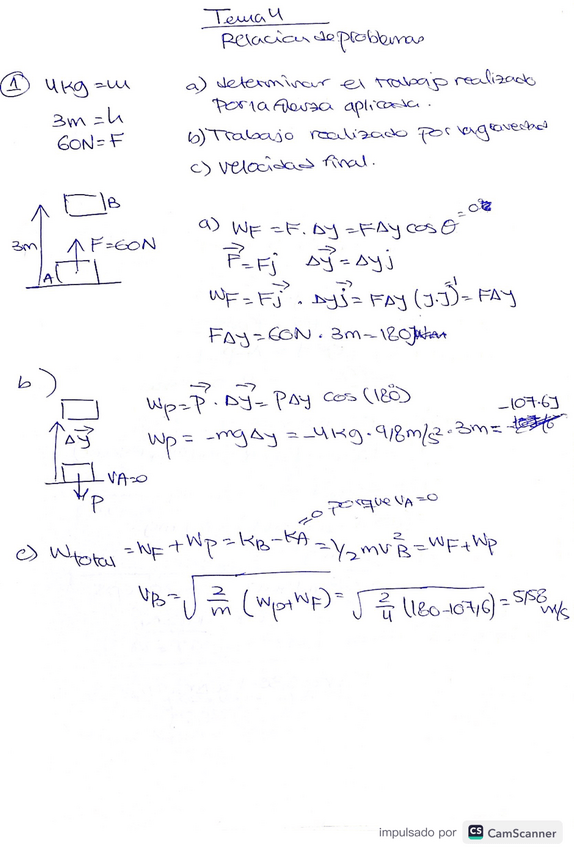 Tema 4
Relacion de problemas
① 4kg = m
3m = h
60N = F
a) determinar el trabajo realizado
por la fuerza aplicada.
b) Trabajo realizado por la gravedad
c) velocidad final.
B
3m
F=60N
A
a) WF = F. Δy = FΔy cos θ =0º
F⃗ = Fj⃗ Δy⃗ = Δyj
WF = Fj⃗ · Δyj⃗ = FΔy (j.j) =1 = FΔy
FΔy = 60N · 3m = 180J
b)
Δy⃗
VA=0
P
Wp = P⃗ · Δy⃗ = PΔy cos (180º)
Wp = -mgΔy = -4kg · 9,8m/s² · 3m = -107.6J
c) Wtotal = WF + Wp = KB - KA =0 porque VA=0 = 1/2 mv²B = WF + Wp
VB = √(2/m (Wp+WF)) = √(2/4 (180-107,6)) = 5,58 m/s
impulsado por CS CamScanner